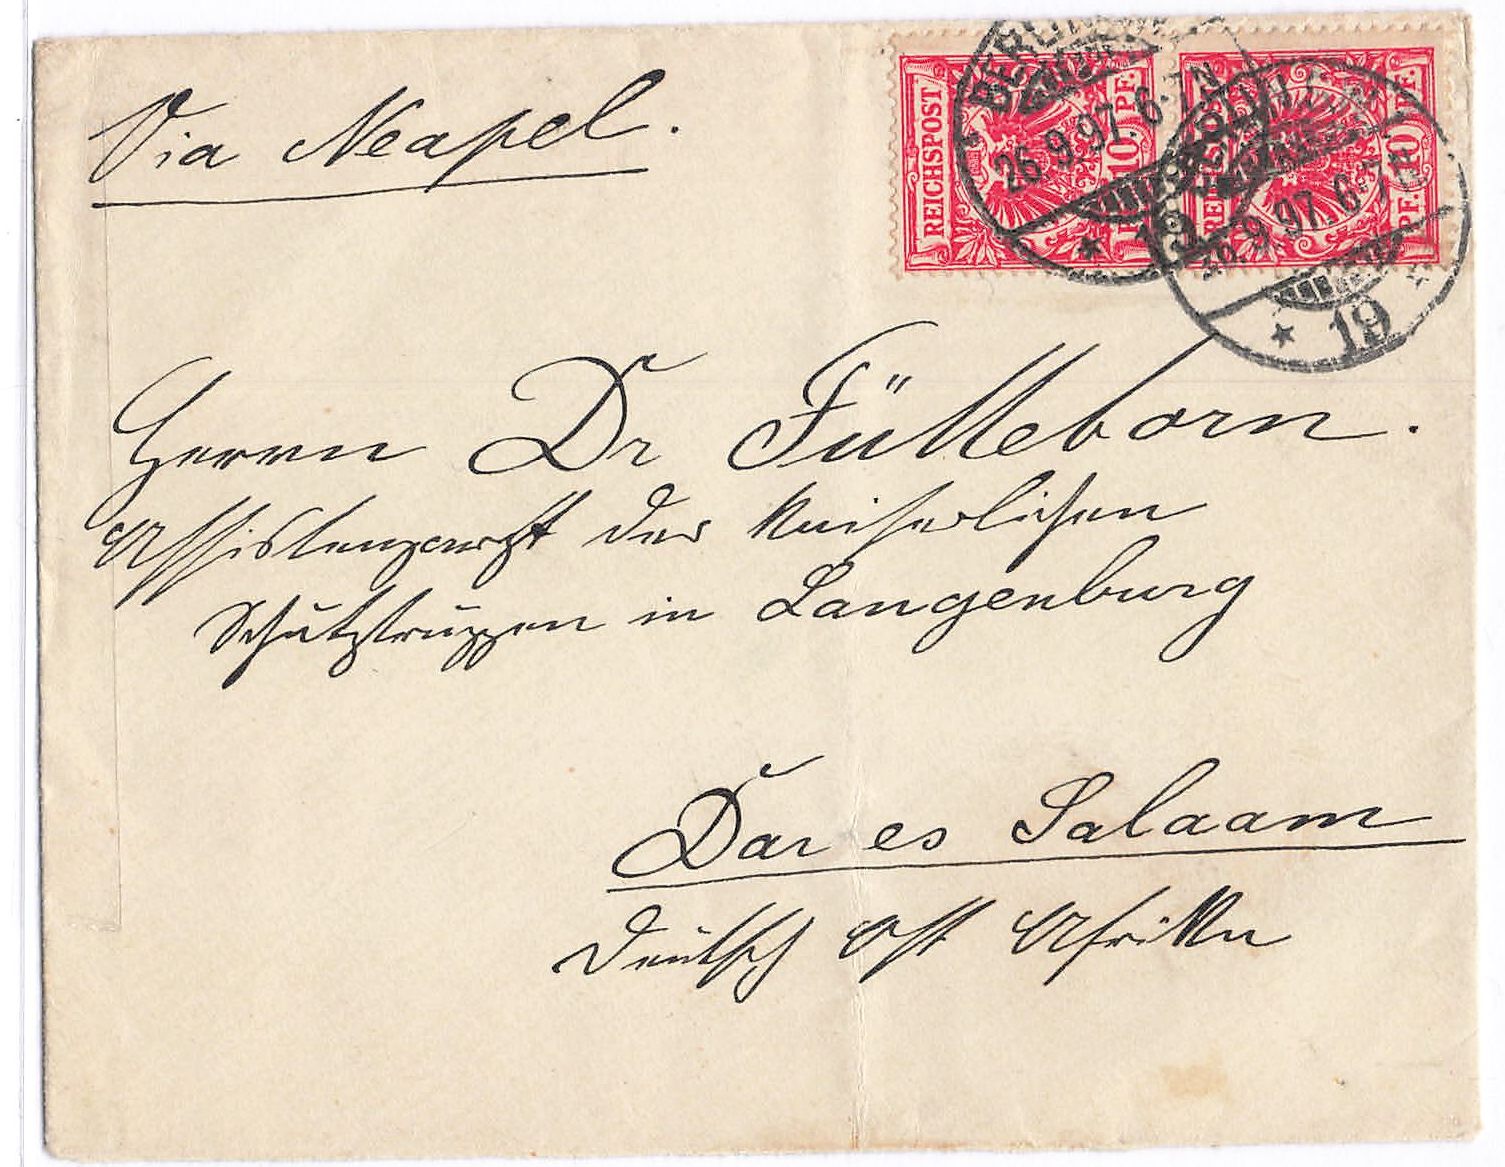 Via Neapel.
REICHSPOST 10 PF. 10 PF.
BERLIN
26.9.97. 6-7N
* 19
9.97. 6-7N
* 19 *
Herrn Dr Fülleborn.
Assistenzarzt der Kaiserlichen
Schutztruppen in Langenburg
Dar es Salaam
Deutsch Ost Afrika